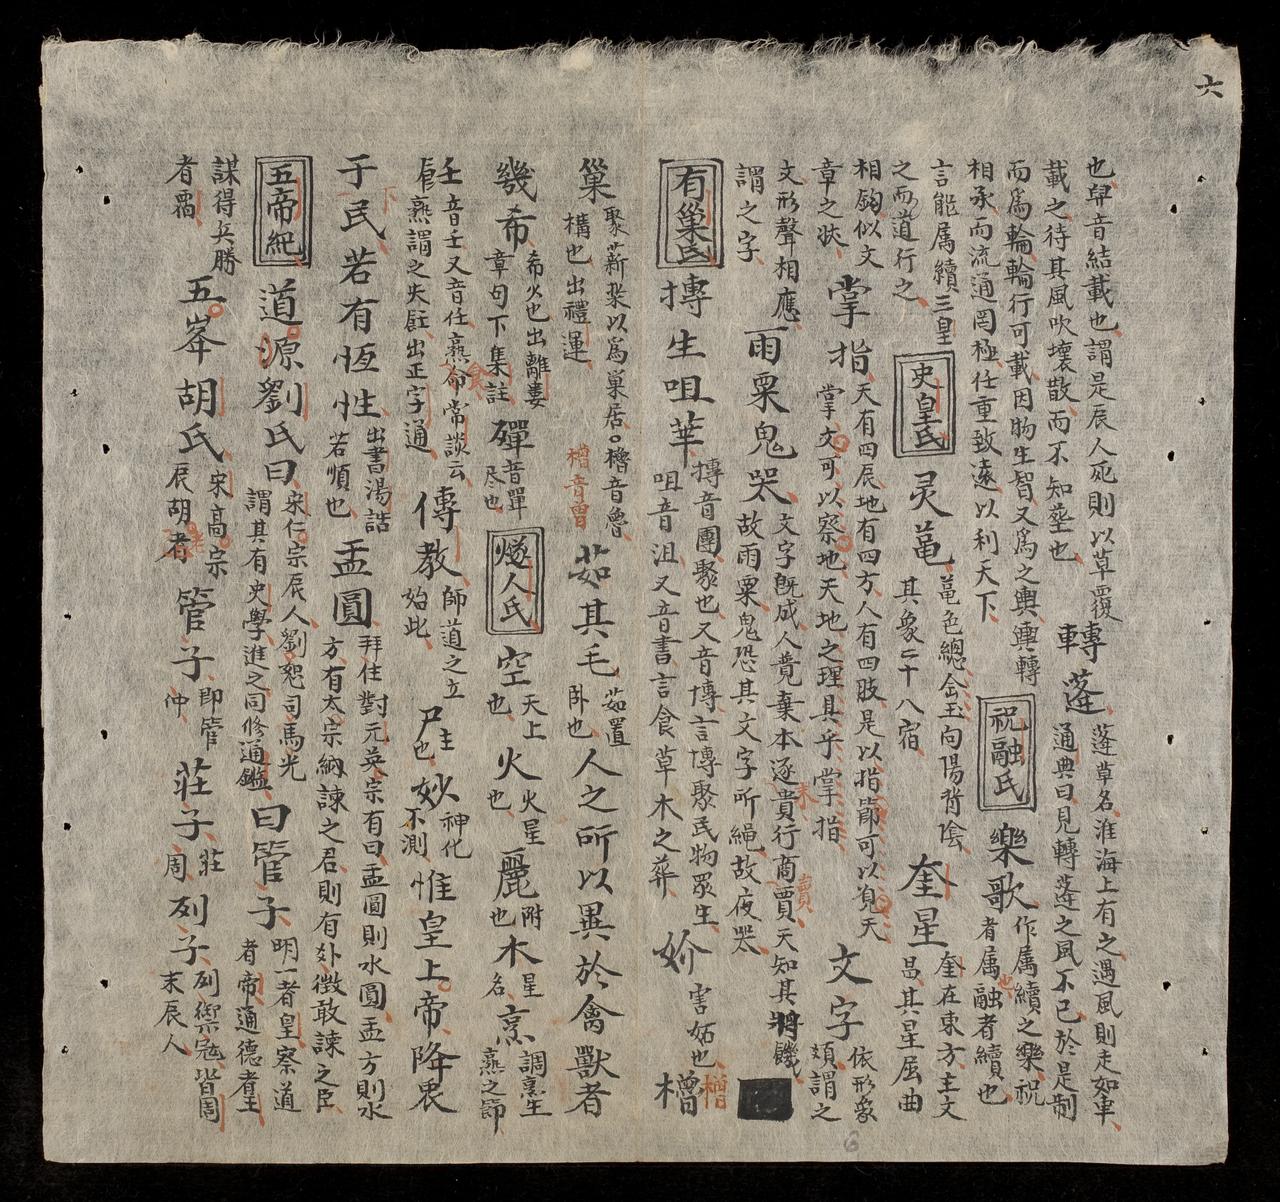 六
也㝃音結載也謂是辰人死則以草覆
載之待其風吹壞散而不知塟也
轉蓬
蓬草名淮海上有之遇風則走如車
通典曰見轉蓬之風不已於是制
而爲輪輪行可載因物生智又爲之輿輿轉
相承而流通罔極任重致遠以利天下
祝融氏
樂歌
作属續之樂祝
者属融者續也
言能属續三皇
之而道行之
史皇氏
灵黽
黽色總金玉向陽背陰
其象二十八宿
奎星
奎在東方主文
昌其星屈曲
相鈎似文
章之狀
掌指
天有四辰地有四方人有四肢是以指節可以覓天
掌文可以察地天地之理具乎掌指
文字
依形象
頬謂之
文形聲相應
謂之字
雨粟鬼哭
文字旣成人竟棄本逐貴行商賈天知其將饑
末
賣
故雨粟鬼恐其文字所繩故夜哭
有巢氏
摶生咀華
摶音團聚也又音博言博聚民物眾生
咀音沮又音書言食草木之葬
妎
害妬也
橧
橧
巢
聚薪柴以爲巢居○橧音魯
構也出禮運
橧音曾
茹其毛
茹置
卧也
人之所以異於禽獸者
幾希
希少也出離婁
章句下集註
殫
音單
尽也
燧人氏
空
天上
也
火
火星
也
麗
附
也
木
星
名
烹
調烹生
熟之節
飪
音壬又音任熟命常談云
熟謂之失飪出正字通
食
傳教
師道之立
始此
尸
主
也
妙
神化
不測
惟皇上帝降衷
下
于民若有恆性
出書湯誥
若順也
盂圓
拜住對元英宗有曰盂圓則水圓盂方則水
方有太宗納諫之君則有外徵敢諫之臣
五帝紀
道源劉氏曰
宋仁宗辰人劉恕司馬光
謂其有史學進之同修通鑑
曰管子
明一者皇察道
者帝通德者王
謀得兵勝
者覇
五峯胡氏
宋高宗
辰胡者
管子
即管
仲
莊子
莊
周
列子
列禦寇皆周
末辰人
6